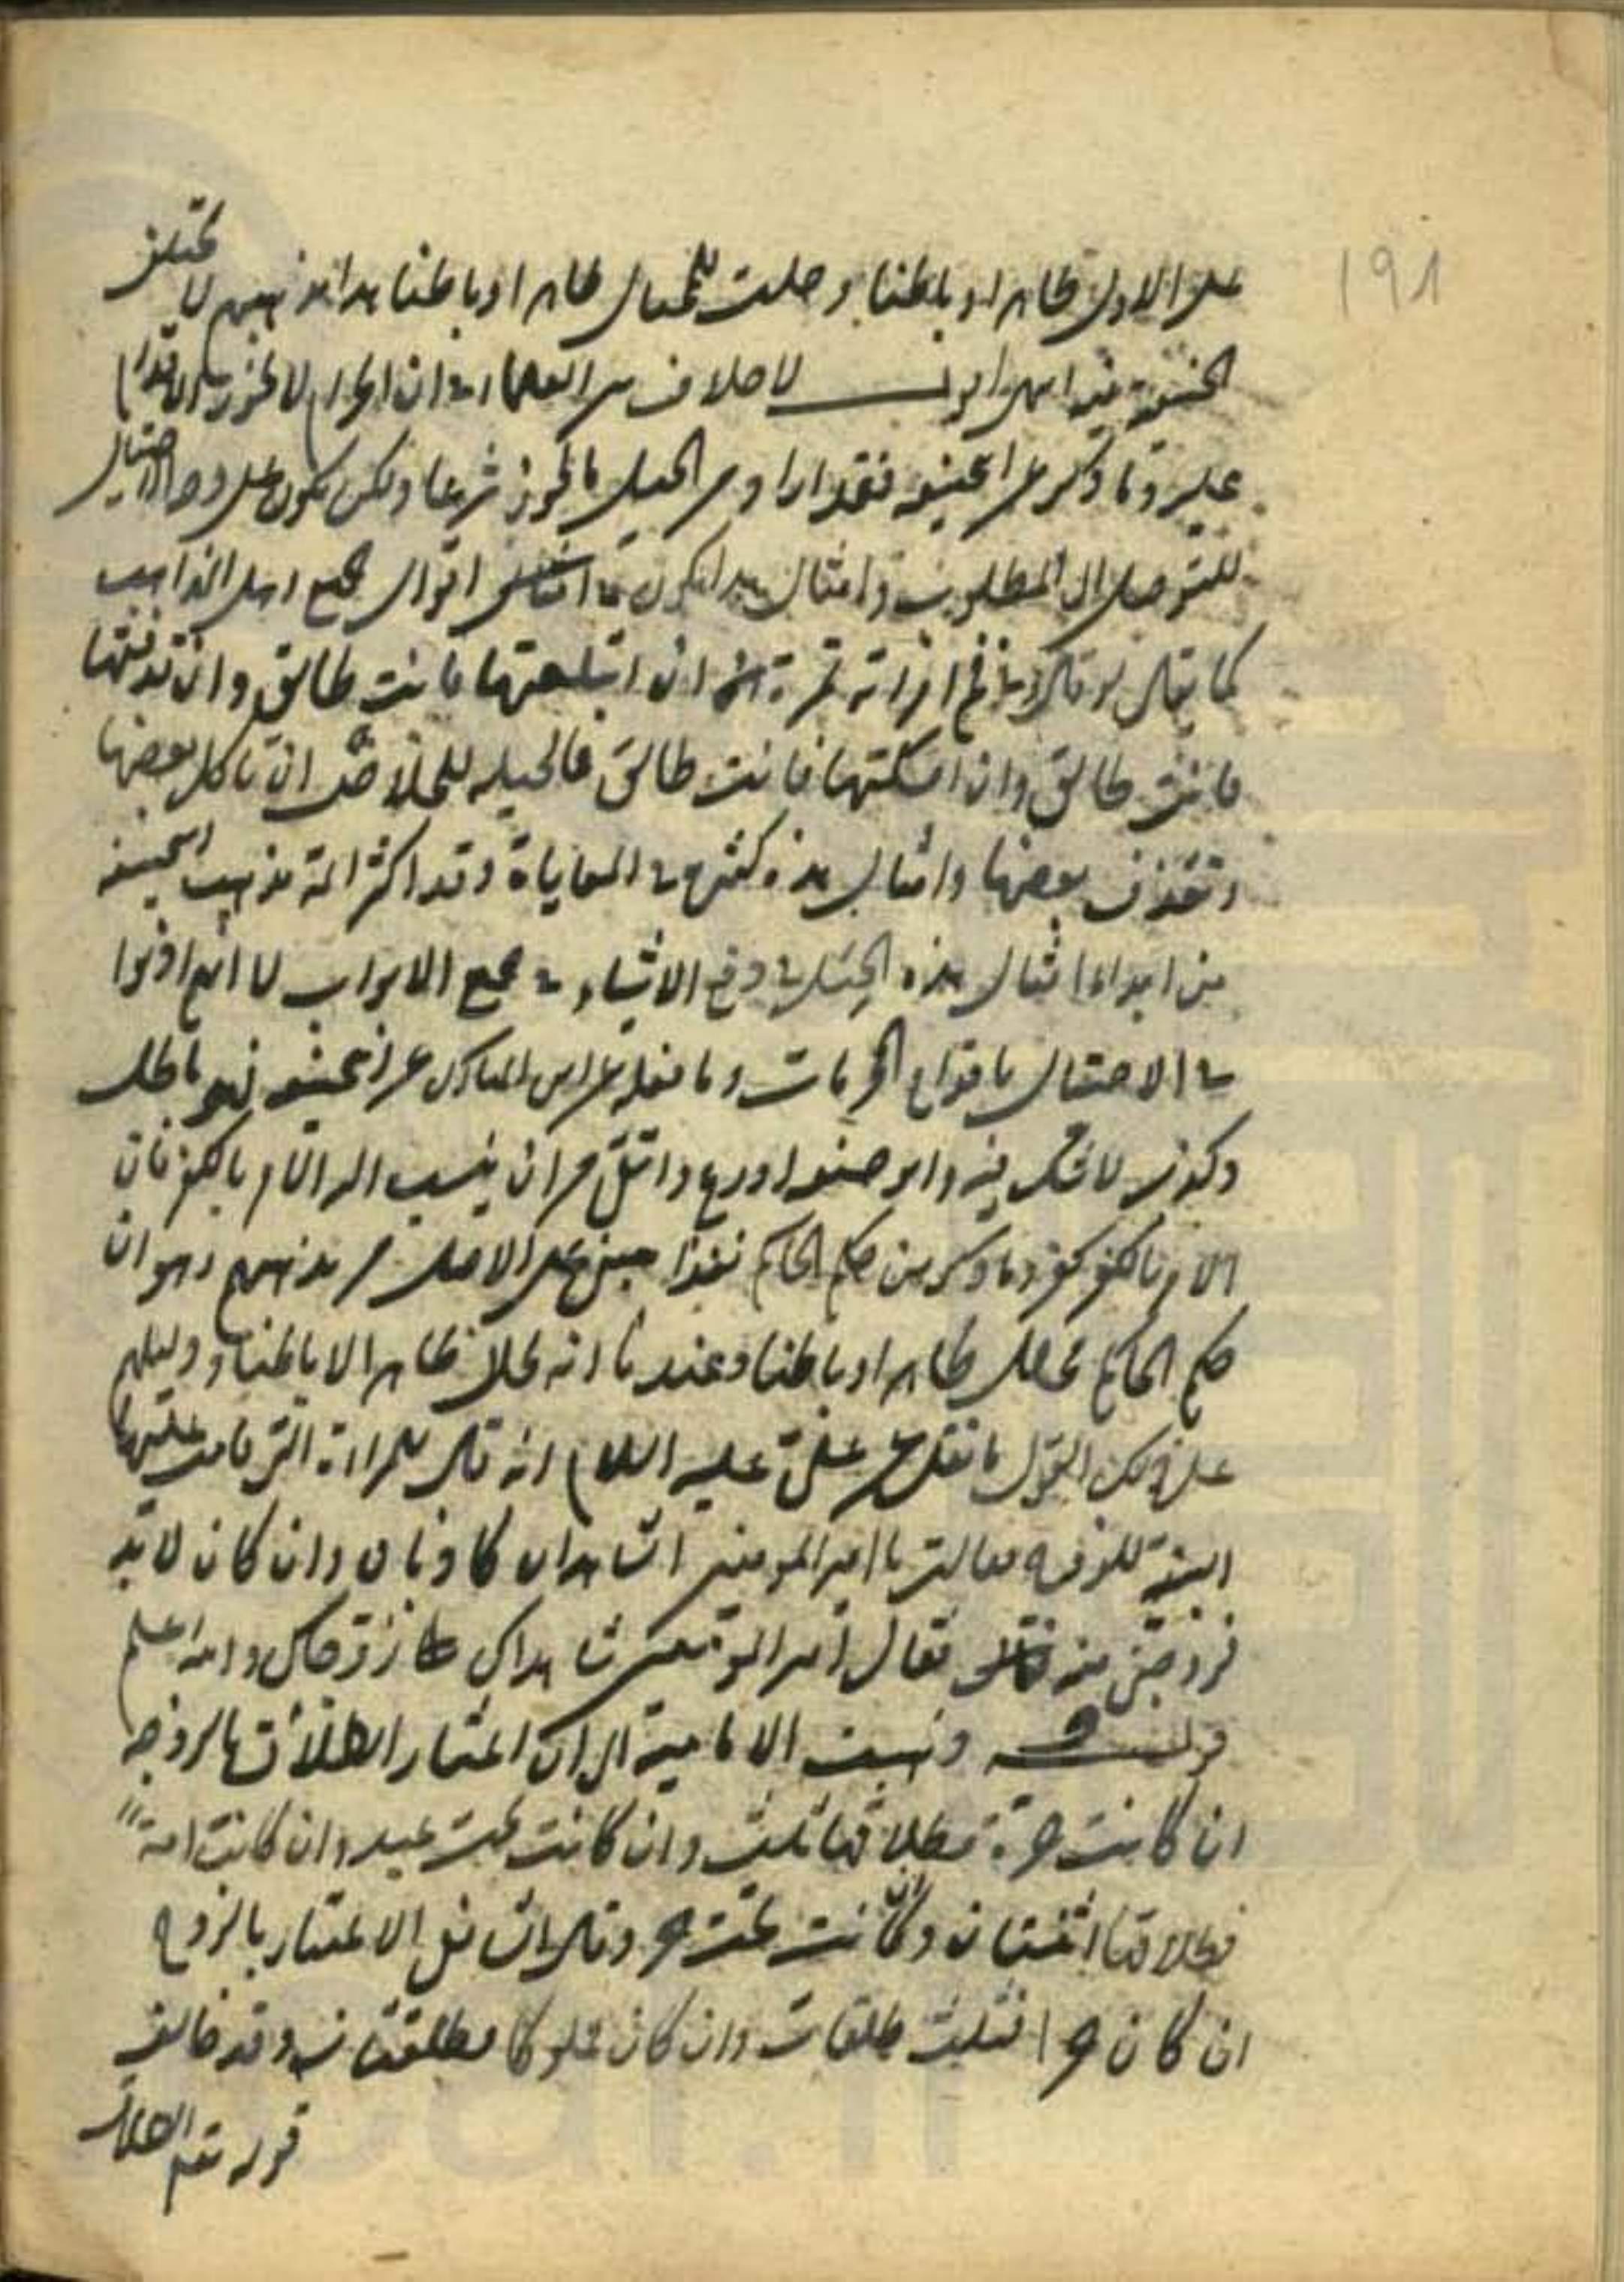 ١٩٨
على الاول ظاهرا وباطنا وحلت للمحتال ظاهرا وباطنا هذا مذهبهم لا يختلف
الحنفية فيه اقول لا خلاف من العلماء في ان الحرام لا يجوز الاقدام
عليه وما ذكر عن ابي حنيفة فقد ارادوا من الحيل ما يجوز شرعا ولكن يكون على وجه الاحتيال
للتوصل الى المطلوب وامثال هذا يكون في اقوال جميع اهل المذاهب
كما يقال لو قال وفي فم امراته تمرة ان ابتلعتها فانت طالق وان قذفتها
فانت طالق وان امسكتها فانت طالق فالحيلة للخلاص ان تاكل بعضها
وتقذف بعضها وامثال هذه كثيرة في المعاياة وقد اكثر ائمة مذهب ابي حنيفة
من ابداء امثال هذه الحيل في الاشياء في جميع الابواب لا انهم اذنوا
في الاحتيال بانواع المحرمات وما نقله عن ابن المبارك عن ابي حنيفة فهو باطل
وكذب لا شك فيه وابو حنيفة اورع واتقى من ان ينسب اليه الامر بالكفر فان
الامر بالكفر كفر وما ذكر من حكم الحاكم فهذا مبني على الاصل من مذهبهم وهو ان
حكم الحاكم يحلل ظاهرا وباطنا وعندنا انه يحلل ظاهرا لا باطنا ودليلهم
على ذلك القول ما نقل عن علي عليه السلام انه قال للمراة التي قامت عليها
البينة للزوجة فقالت يا امير المؤمنين الشاهدان كاذبان وان كان لا بد
فزوجني منه فقال امير المؤمنين شاهداك زوجاك والله اعلم
قوله وذهبت الامامية الى ان اعتبار الطلاق بالزوجة
ان كانت حرة فطلاقها ثلث وان كانت تحت عبد وان كانت امة
فطلاقها اثنتان وان كانت تحت حر وقال الشافعي الاعتبار بالزوج
ان كان حرا فثلث طلقات وان كان مملوكا فطلقتان وقد خالف
قوله تعالى الطلاق